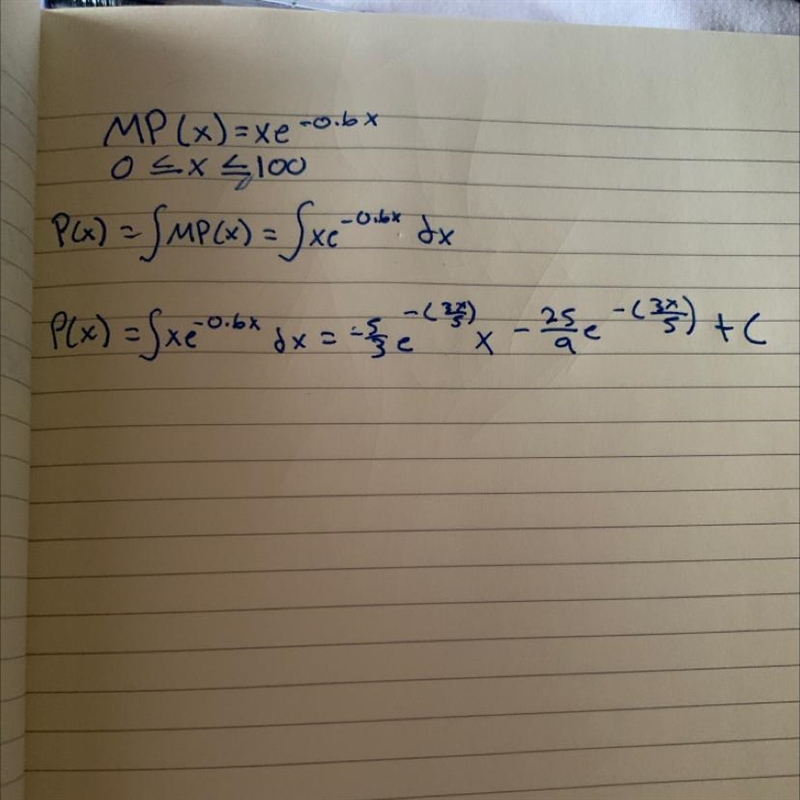 MP(x)=xe^-0.6x
0 ≤ x ≤ 100
P(x) = ∫MP(x) = ∫xe^-0.6x dx
P(x) = ∫xe^-0.6x dx = -5/3 e^-(3x/5) x - 25/9 e^-(3x/5) + C